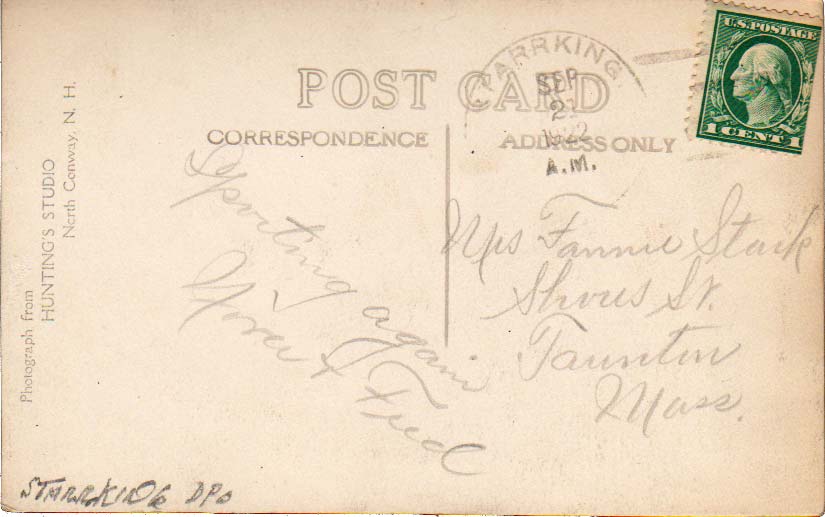 U.S. POSTAGE
1 CENT 1
STARRKING,
SEP
21
1922
A.M.
POST CARD
CORRESPONDENCE
ADDRESS ONLY
Sporting again
Nora & Fred
Mrs Fannie Stark
Shores St.
Taunton
Mass.
Photograph from
HUNTING'S STUDIO
North Conway, N. H.
STARRKING DPO